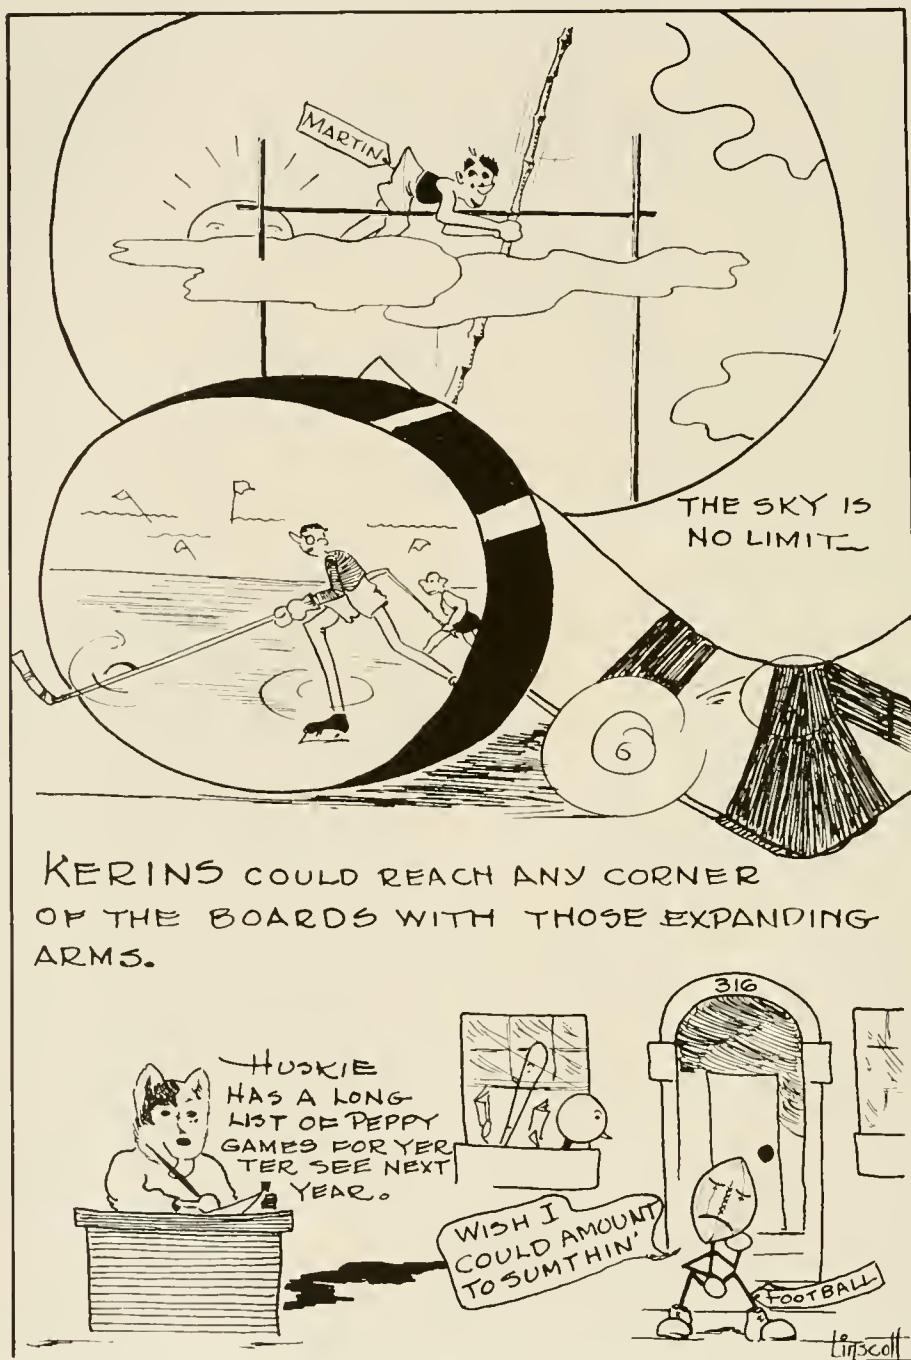 MARTIN
THE SKY IS
NO LIMIT
6
KERINS COULD REACH ANY CORNER
OF THE BOARDS WITH THOSE EXPANDING
ARMS.
HUSKIE
HAS A LONG
LIST OF PEPPY
GAMES FOR YER
TER SEE NEXT
YEAR.
316
WISH I
COULD AMOUNT
TO SUMTHIN'
FOOTBALL
Linscott